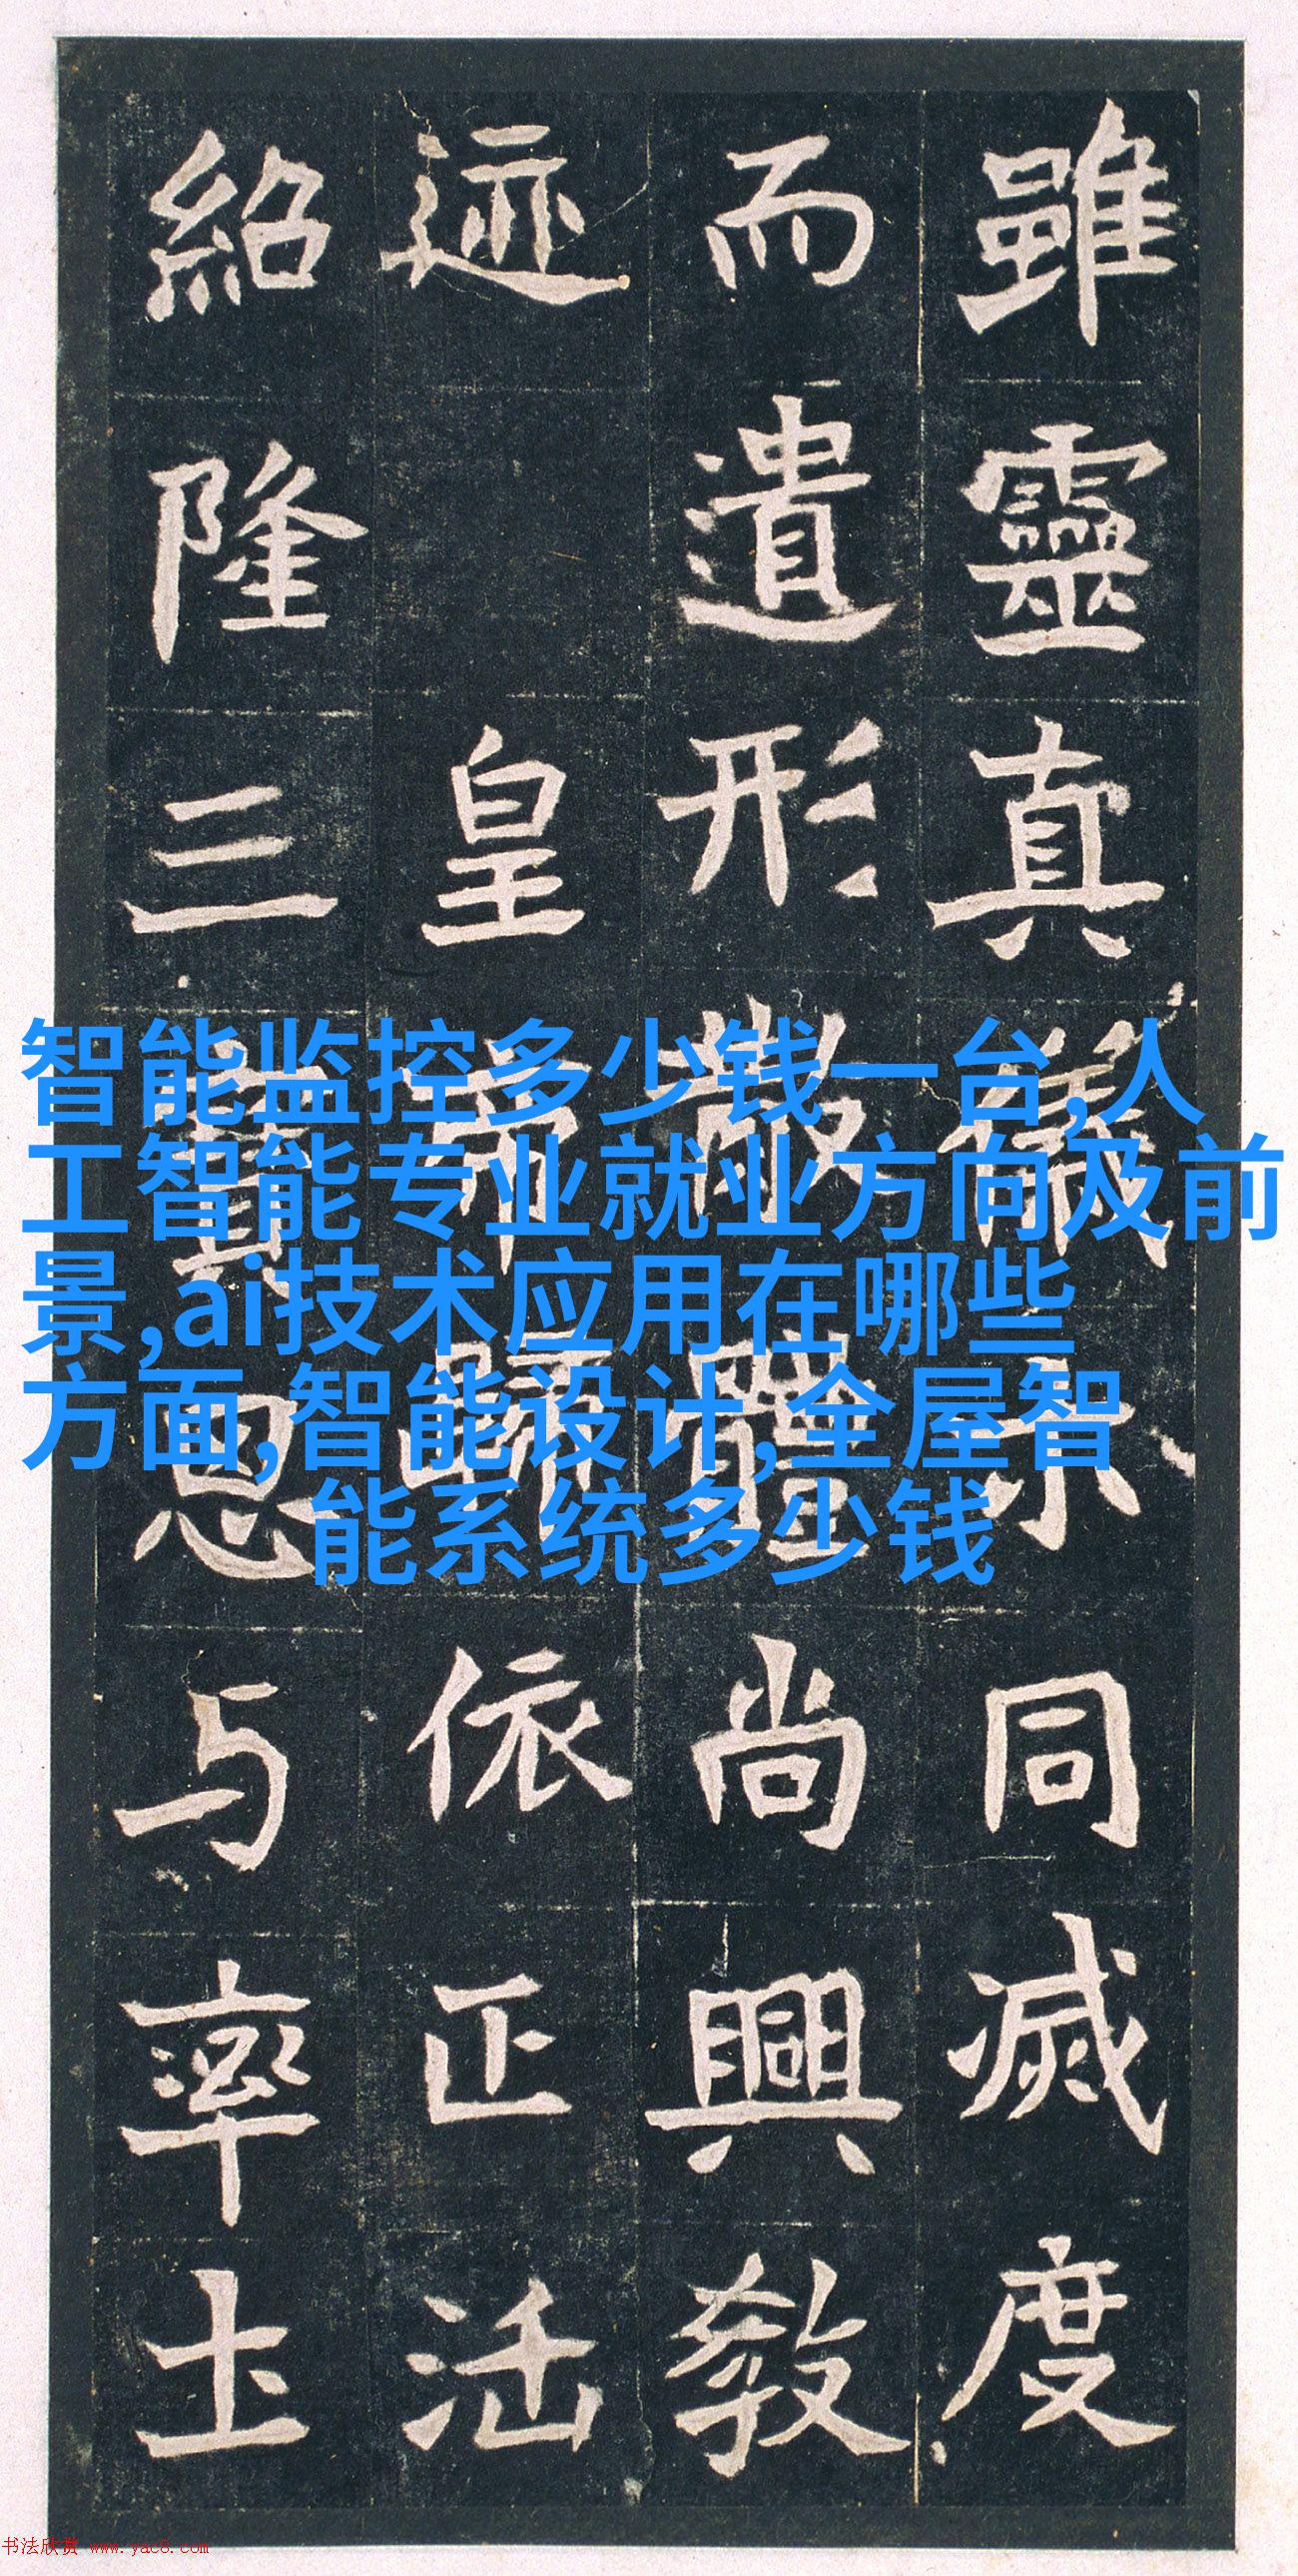 雖靈真儀示同滅度
而遺形散體尚興教
迹 皇帝歸依正法
紹隆三寶恩与率土
智能监控多少钱一台,人
工智能专业就业方向及前
景,ai技术应用在哪些
方面,智能设计,全屋智
能系统多少钱
书法欣赏 www.yac8.com